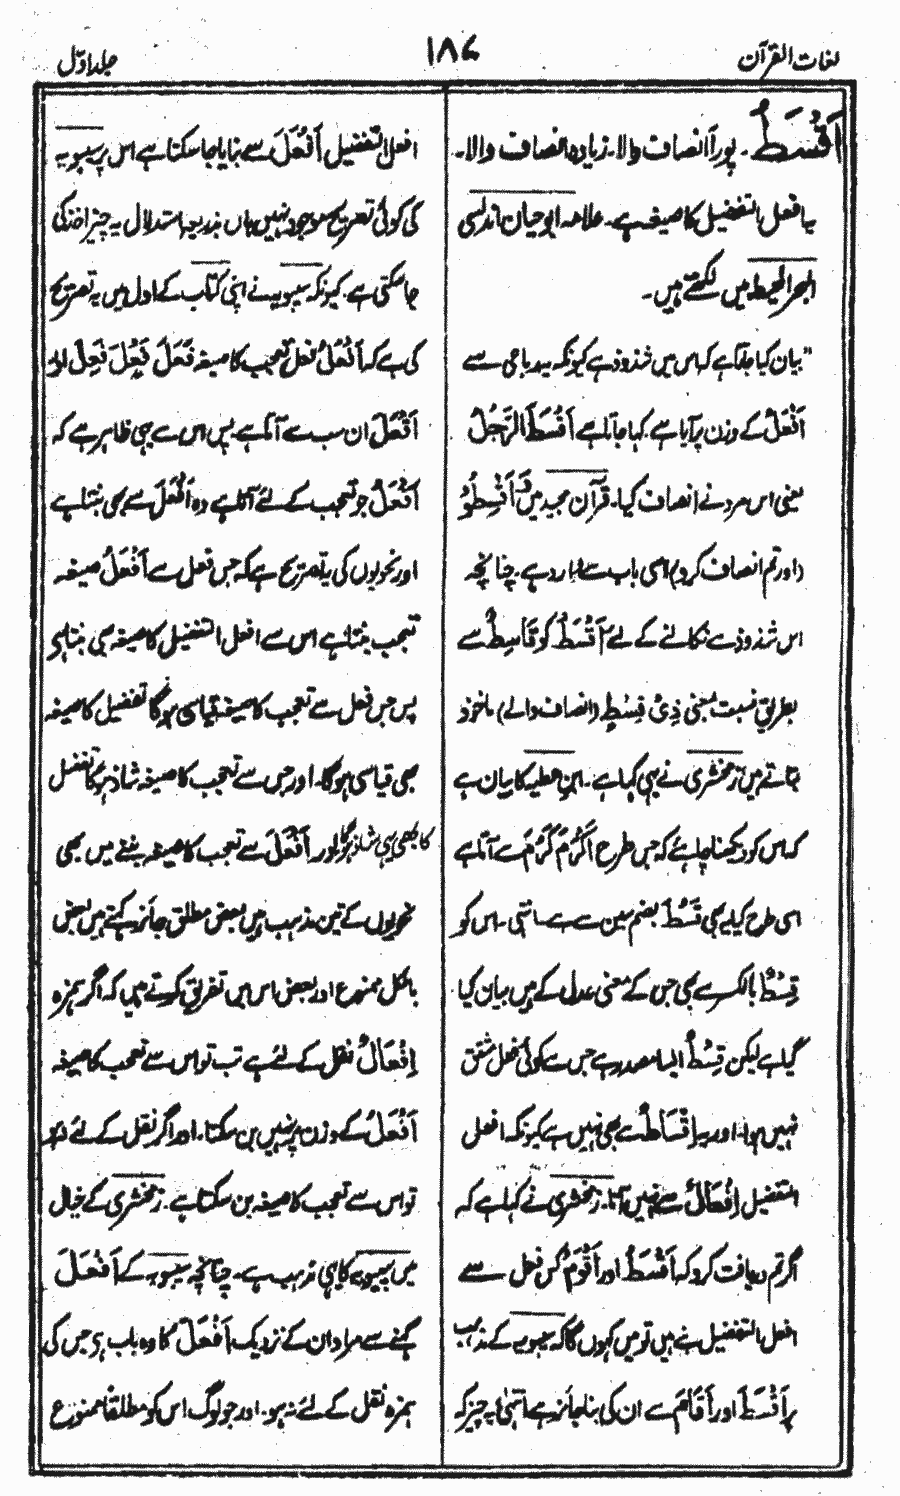 لغات القرآن
۱۸۶
جلد اوّل
اَقْسَطُ ۔ پورا انصاف والا۔ زیادہ انصاف والا۔
یہ افعل التفضیل کا صیغہ ہے۔ علامہ ابو حیان اندلسی
البحر المحیط میں لکھتے ہیں۔
"بیان کیا جاتا ہے کہ اس میں شذوذ ہے کیونکہ یہ رباعی سے
اَفْعَلَ کے وزن پر آیا ہے۔ کہا جاتا ہے اَقْسَطَ الرَّجُلُ
یعنی اس مرد نے انصاف کیا۔ قرآن مجید میں ہے اَقْسِطُوْا
(اور تم انصاف کرو) اسی باب سے وارد ہے۔ چنانچہ
اس شذوذ سے نکالنے کے لئے اَقْسَطُ کو قَاسِطٌ سے
بطریق نسبت بمعنی ذِیْ قِسْطٍ (انصاف والے) ماخوذ
بتاتے ہیں زمخشری نے یہی کہا ہے۔ ابن عطیہ کا بیان ہے
کہ اس کو دیکھنا چاہئے کہ جس طرح اَکْرَمُ کَرُمَ سے آتا ہے
اسی طرح کیا یہ بھی قَسُطَ بضم سین سے ہے۔ انتہی۔ اس کو
قِسْطٌ بالکسر سے بھی جس کے معنی عدل کے ہیں بیان کیا
گیا ہے لیکن قِسْطٌ ایسا مصدر ہے جس سے کوئی فعل مشتق
نہیں ہوا۔ اور یہ اِقْسَاطٌ سے بھی نہیں ہے کیونکہ افعل
التفضیل اِفْعَالٌ سے نہیں آتا۔ زمخشری نے کہا ہے کہ
اگر تم دریافت کرو کہ اَقْسَطُ اور اَقْوَمُ کس فعل سے
افعل التفضیل بنے ہیں تو میں کہوں گا کہ سیبویہ کے مذہب
پر اَقْسَطَ اور اَقَامَ سے ان کی بنا جائز ہے انتہیٰ یہ چیز کہ
افعل التفضیل اَفْعَلَ سے بنایا جا سکتا ہے اس پر سیبویہ
کی کوئی تصریح موجود نہیں ہاں بذریعہ استدلال یہ چیز اخذ کی
جا سکتی ہے۔ کیونکہ سیبویہ نے اپنی کتاب کے اول میں یہ تصریح
کی ہے کہ اَفْعَلُ فعل تعجب کا صیغہ فَعَلَ فَعُلَ فَعِلَ اور
اَفْعَلَ ان سب سے آتا ہے پس اس سے یہی ظاہر ہے کہ
اَفْعَلُ جو تعجب کے لئے آتا ہے وہ اَفْعَلَ سے بھی بنتا ہے
اور نحویوں کی یہ تصریح ہے کہ جس فعل سے اَفْعَلُ صیغہ
تعجب بنتا ہے اس سے افعل التفضیل کا صیغہ بھی بنتا ہے
پس جس فعل سے تعجب کا صیغہ قیاسی ہوگا تفضیل کا صیغہ
بھی قیاسی ہوگا۔ اور جس سے تعجب کا صیغہ شاذ ہوگا تفضیل
کا بھی یہی شاذ ہوگا اور اَفْعَلَ سے تعجب کا صیغہ بننے میں بھی
نحویوں کے تین مذہب ہیں بعض مطلق جائز کہتے ہیں بعض
بالکل ممنوع اور بعض اس میں تفریق کرتے ہیں کہ اگر ہمزہ
اِفْعَالٌ نقل کے لئے ہے تب تو اس سے تعجب کا صیغہ
اَفْعَلُ کے وزن پر نہیں بن سکتا۔ اور اگر نقل کے لئے نہیں
تو اس سے تعجب کا صیغہ بن سکتا ہے۔ زمخشری کے خیال
میں سیبویہ کا یہی مذہب ہے۔ چنانچہ سیبویہ کے اَفْعَلَ
کہنے سے مراد ان کے نزدیک اَفْعَلَ کا وہ باب ہے جس کی
ہمزہ نقل کے لئے نہ ہو۔ اور جو لوگ اس کو مطلقًا ممنوع